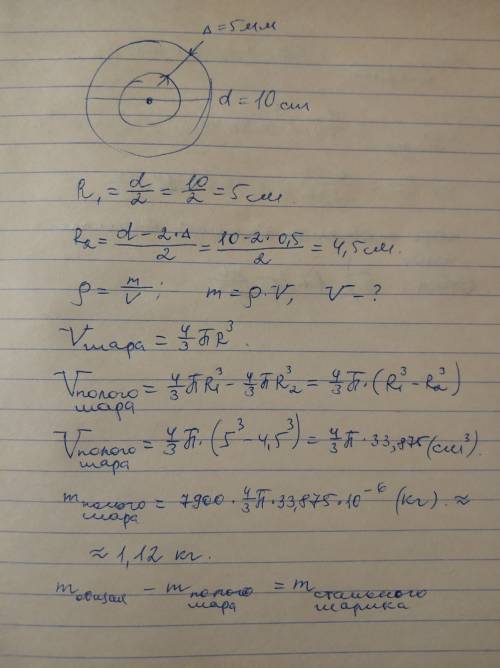 Δ = 5 мм
d = 10 см
R₁ = d/2 = 10/2 = 5 см.
R₂ = (d - 2·Δ)/2 = (10 - 2·0,5)/2 = 4,5 см.
ρ = m/V; m = ρ·V, V - ?
Vшара = 4/3 πR³.
Vполого шара = 4/3 πR₁³ - 4/3 πR₂³ = 4/3 π·(R₁³ - R₂³)
Vполого шара = 4/3 π·(5³ - 4,5³) = 4/3 π·33,875 (см³).
mполого шара = 7900·4/3 π·33,875·10⁻⁶ (кг). ≈
≈ 1,12 кг.
mобщая - mполого шара = mстального шарика